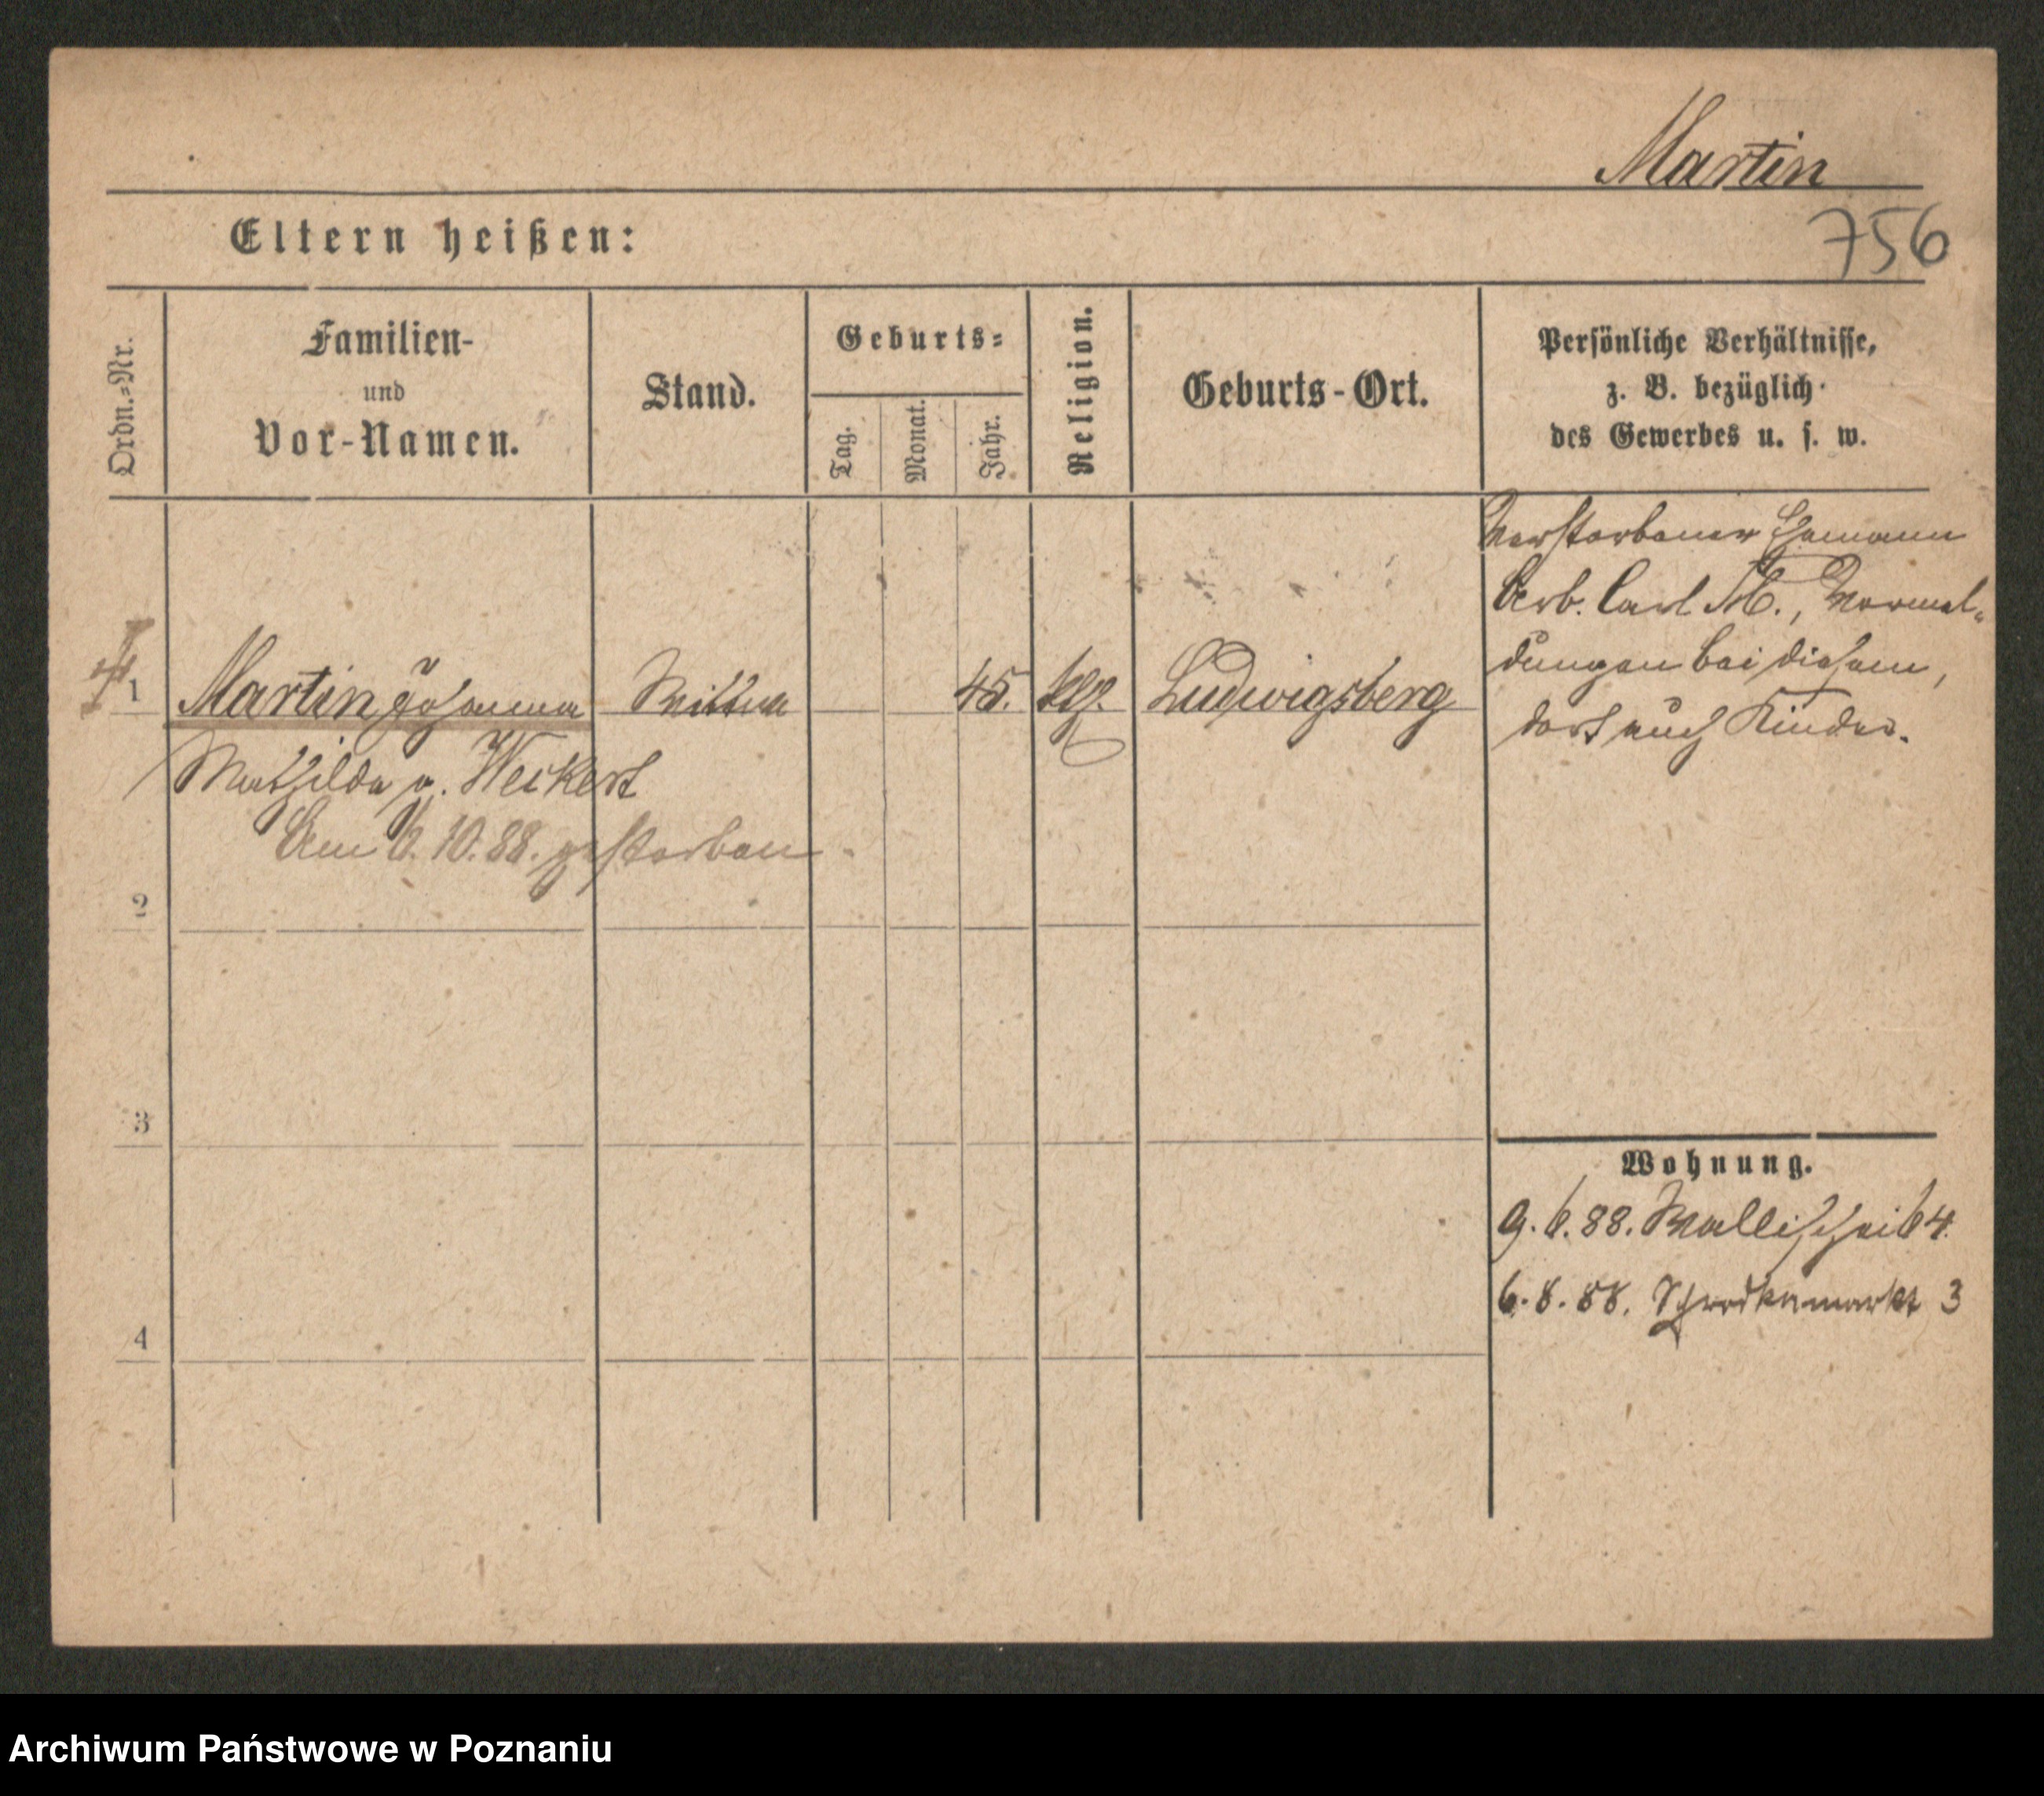 Martin
756
Eltern heißen:
Ordn.-Nr.
Familien-
und
Vor-Namen.
Stand.
Geburts-
Tag.
Monat.
Jahr.
Religion.
Geburts-Ort.
Persönliche Verhältnisse,
z. B. bezüglich
des Gewerbes u. s. w.
Verstorbener Ehemann
Carl M., Vermel-
dungen bei diesem,
dort auch Kinder.
1 Martin Johanna Wittwe 45. Ludwigsberg
Mathilde g. Weckert
Am 6.10.88. gestorben
2
3
4
Wohnung.
9.6.88. Wallischei 64.
6.8.88. Schrodkamarkt 3
Archiwum Państwowe w Poznaniu